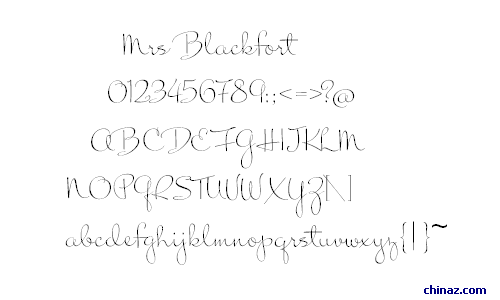 Mrs Blackfort
0123456789:;<=>?@
ABCDEFGHIJKLM
NOPQRSTUVWXYZ[\]
abcdefghijklmnopqrstuvwxyz{|}~
chinaz.com